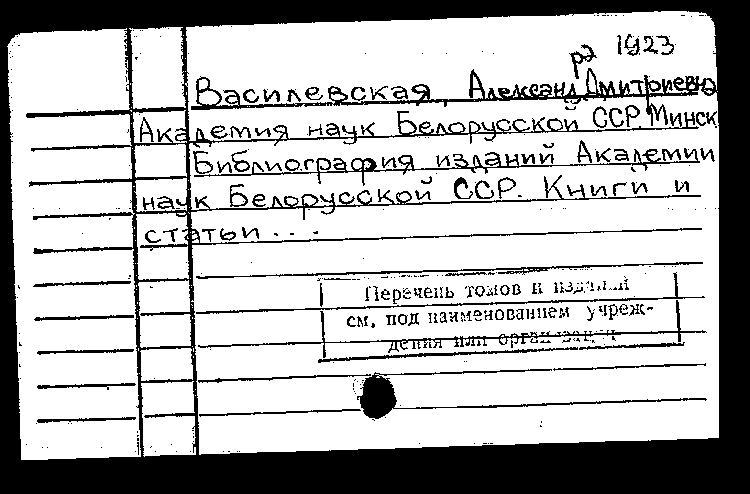 1923
Василевская, Александра Дмитриевна
Академия наук Белорусской ССР. Минск
Библиография изданий Академии
наук Белорусской ССР. Книги и
статьи...
Перечень томов и изданий
см. под наименованием учреж-
дения или организации